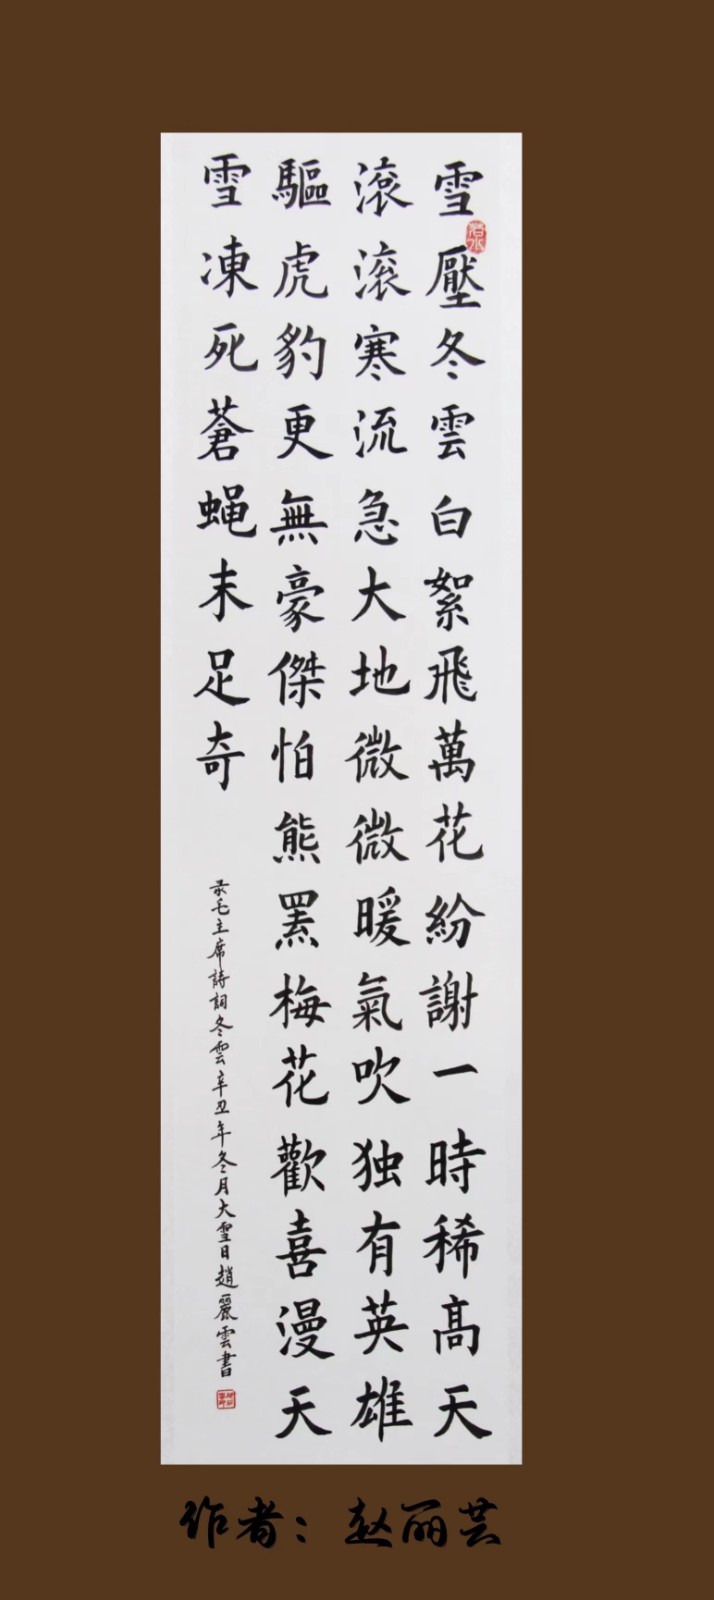 雪壓冬雲白絮飛萬花紛謝一時稀高天
滾滾寒流急大地微微暖氣吹独有英雄
驅虎豹更無豪傑怕熊罴梅花歡喜漫天
雪凍死蒼蝇末足奇
录毛主席詩詞冬雲辛丑年冬月大雪日趙麗雲書
作者：赵丽芸